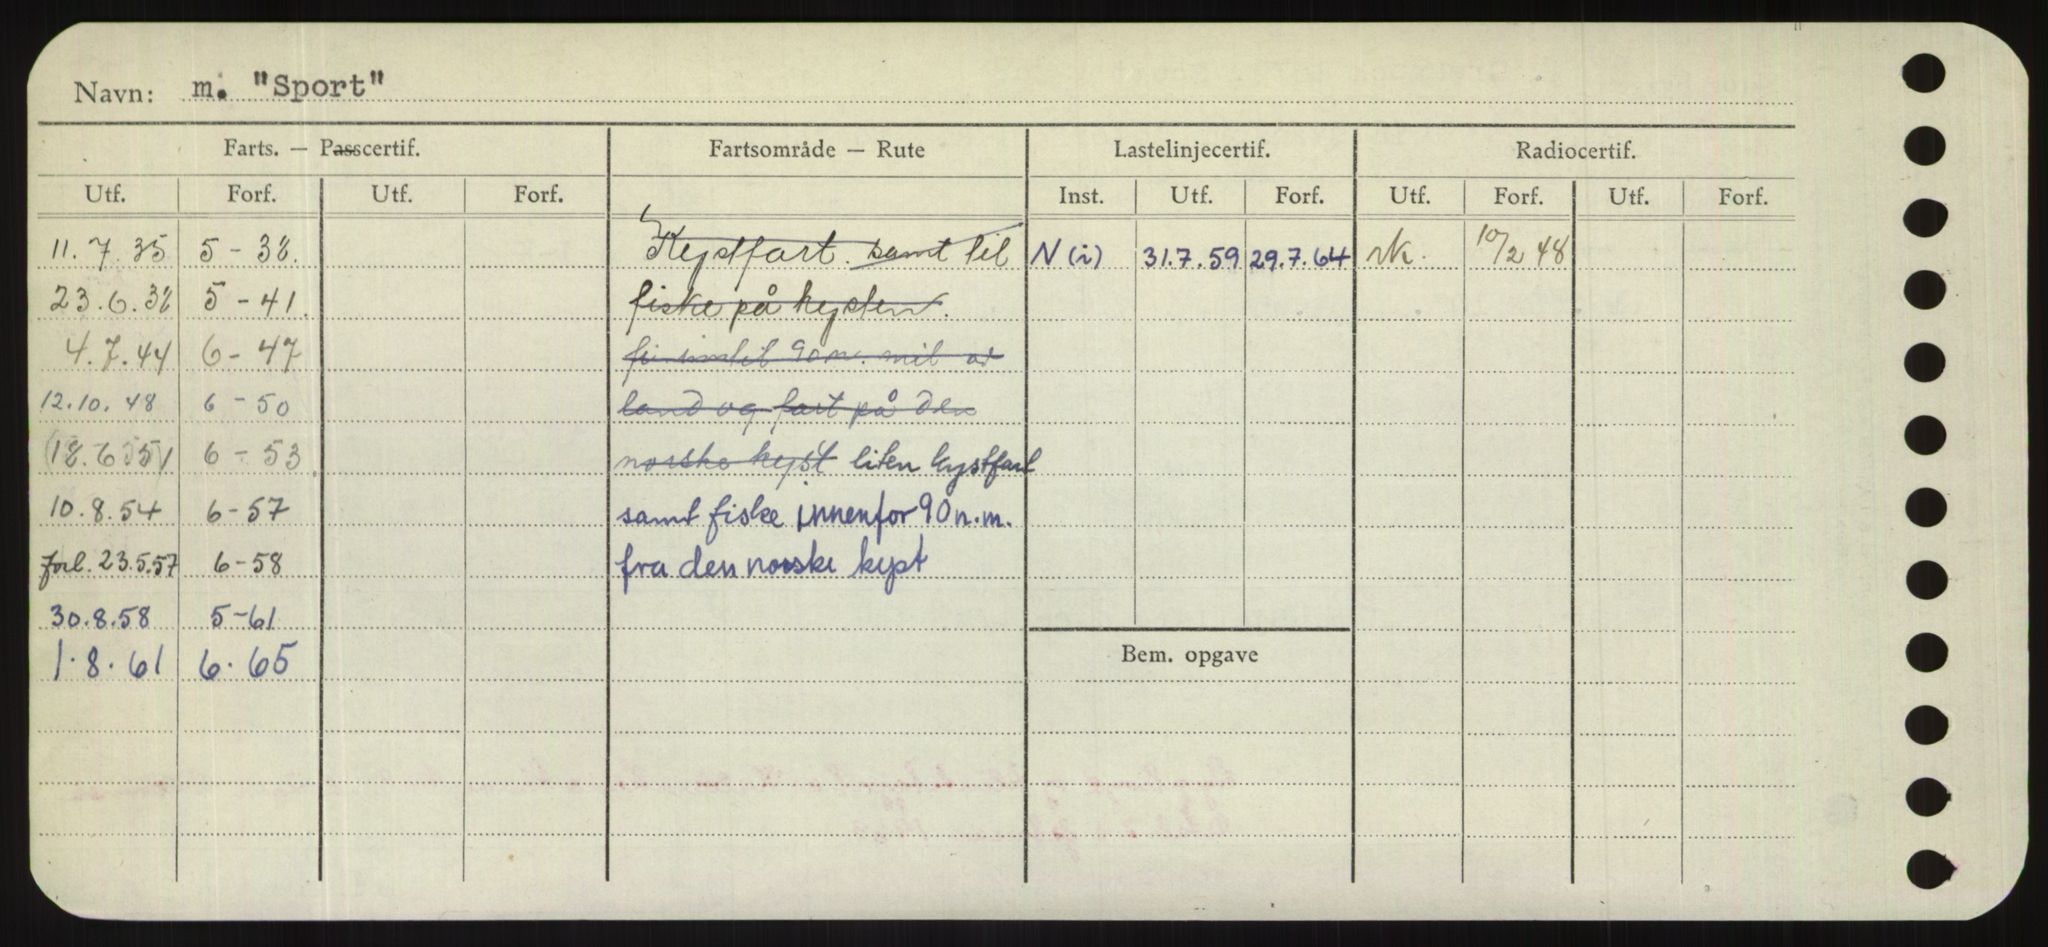 Navn: m. "Sport"
Farts. — Passcertif. Fartsområde — Rute Lastelinjecertif. Radiocertif.
Utf. Forf. Utf. Forf. Inst. Utf. Forf. Utf. Forf. Utf. Forf.
11.7.35 5-38. Kystfart. samt til N (i) 31.7.59 29.7.64 10/2 48
23.6.38 5-41. fiske på kysten.
4.7.44 6-47 90 n. mil av
12.10.48 6-50 land og fart på den
(18.6.51) 6-53 norske kyst liten kystfart
10.8.54 6-57 samt fiske innenfor 90 n.m.
forl. 23.5.57 6-58 fra den norske kyst
30.8.58 5-61
1.8.61 6.65
Bem. opgave